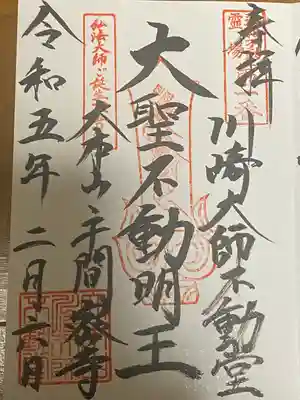 奉拝
川崎大師不動堂
大聖不動明王
弘法大師ご誕生
大本山平間寺
令和五年 二月十六日